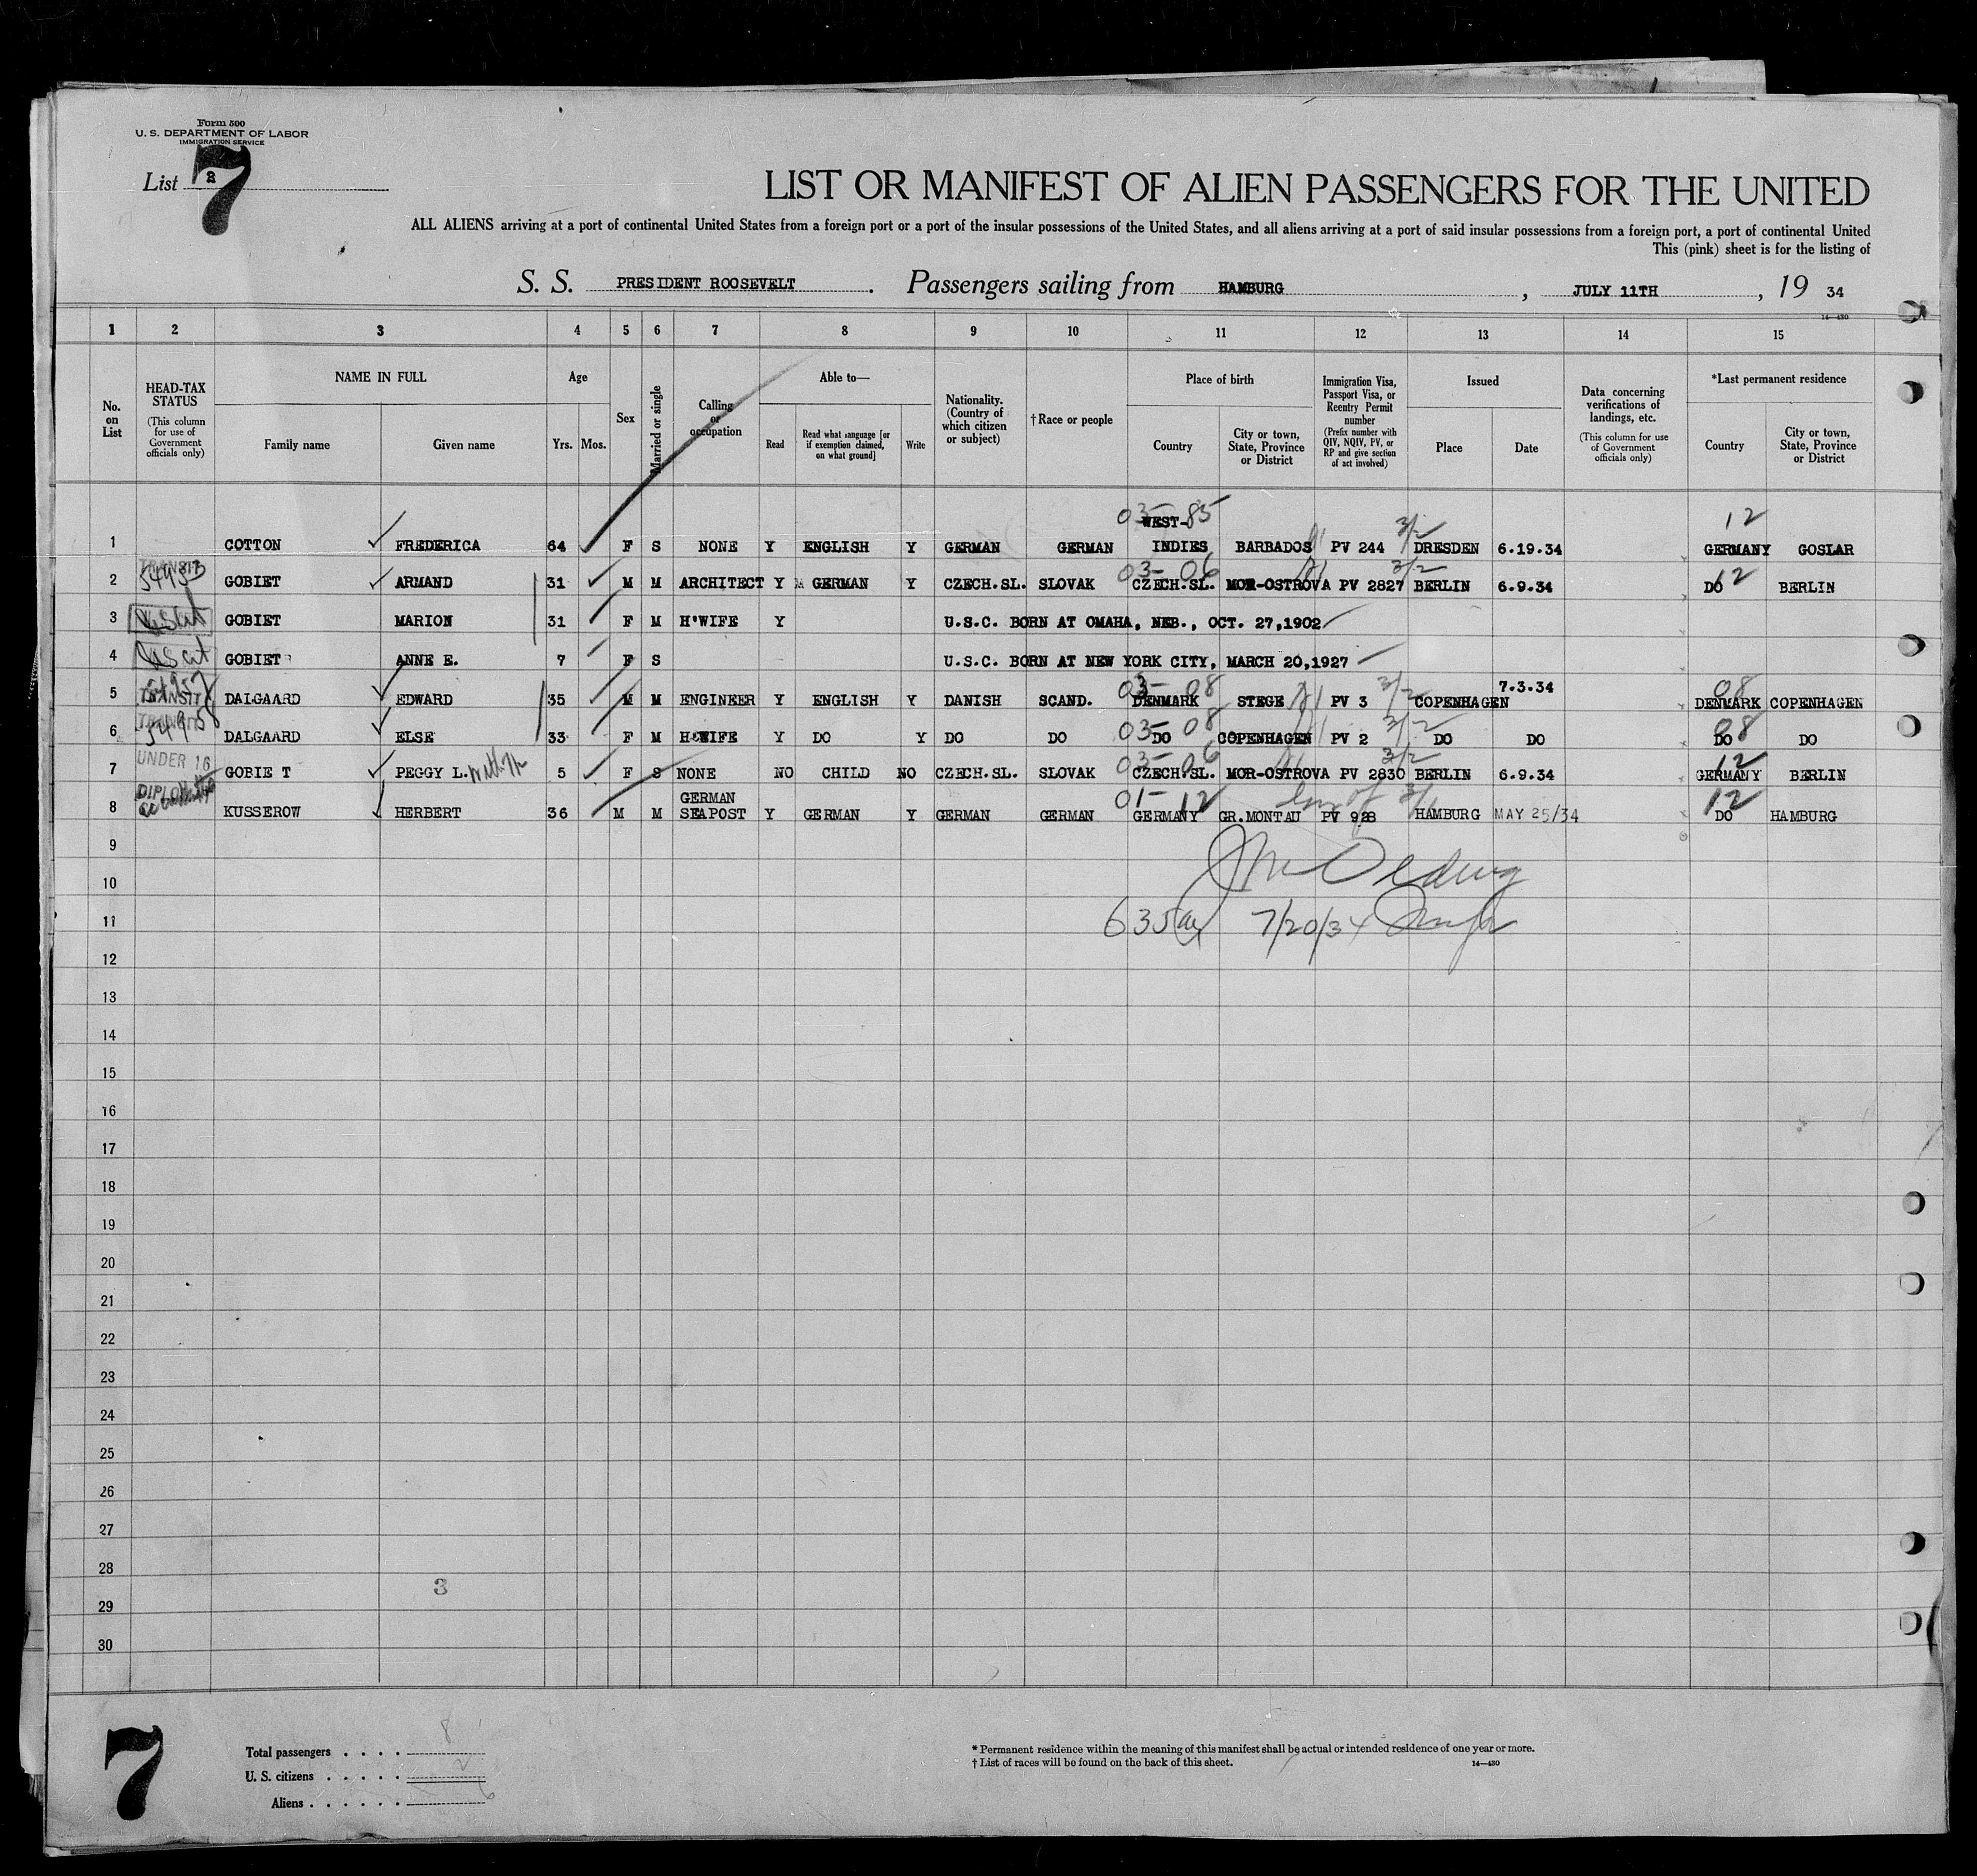 Form 500
U. S. DEPARTMENT OF LABOR
IMMIGRATION SERVICE
List 2
7
LIST OR MANIFEST OF ALIEN PASSENGERS FOR THE UNITED
ALL ALIENS arriving at a port of continental United States from a foreign port or a port of the insular possessions of the United States, and all aliens arriving at a port of said insular possessions from a foreign port, a port of continental United
This (pink) sheet is for the listing of
S. S. PRESIDENT ROOSEVELT. Passengers sailing from HAMBURG, JULY 11TH, 19 34
14—430
1 2 3 4 5 6 7 8 9 10 11 12 13 14 15
No. on List
HEAD-TAX STATUS (This column for use of Government officials only)
NAME IN FULL
Family name Given name
Age
Yrs. Mos.
Sex
Married or single
Calling or occupation
Able to—
Read Read what language [or if exemption claimed, on what ground] Write
Nationality. (Country of which citizen or subject)
†Race or people
Place of birth
Country City or town, State, Province or District
Immigration Visa, Passport Visa, or Reentry Permit number (Prefix number with QIV, NQIV, PV, or RP and give section of act involved)
Issued
Place Date
Data concerning verifications of landings, etc. (This column for use of Government officials only)
*Last permanent residence
Country City or town, State, Province or District
03- 85 3/2 12
1 COTTON FREDERICA 64 F S NONE Y ENGLISH Y GERMAN GERMAN WEST-INDIES BARBADOS PV 244 DRESDEN 6.19.34 GERMANY GOSLAR
03- 06 3/2 12
2 GOBIET ARMAND 31 M M ARCHITECT Y GERMAN Y CZECH.SL. SLOVAK CZECH.SL. MOR-OSTROVA PV 2827 BERLIN 6.9.34 DO BERLIN
3 GOBIET MARION 31 F M H'WIFE Y U.S.C. BORN AT OMAHA, NEB., OCT. 27,1902
4 GOBIET ANNE E. 7 F S U.S.C. BORN AT NEW YORK CITY, MARCH 20,1927
TRANSIT 03- 08 3/2 08
5 DALGAARD EDWARD 35 M M ENGINEER Y ENGLISH Y DANISH SCAND. DENMARK STEGE PV 3 COPENHAGEN 7.3.34 DENMARK COPENHAGEN
54958 03- 08 3/2 08
6 DALGAARD ELSE 33 F M H'WIFE Y DO Y DO DO DO COPENHAGEN PV 2 DO DO DO DO
UNDER 16 03- 06 3/2 12
7 GOBIE T PEGGY L. 5 F S NONE NO CHILD NO CZECH.SL. SLOVAK CZECH.SL. MOR-OSTROVA PV 2830 BERLIN 6.9.34 GERMANY BERLIN
01- 12 3/1 12
8 KUSSEROW HERBERT 36 M M GERMAN SEAPOST Y GERMAN Y GERMAN GERMAN GERMANY GR.MONTAU PV 928 HAMBURG MAY 25/34 DO HAMBURG
9
10
11 7/20/34
12
13
14
15
16
17
18
19
20
21
22
23
24
25
26
27
28
3
29
30
7
Total passengers . . . . 8
U. S. citizens . . . . . 2
Aliens . . . . . . 6
* Permanent residence within the meaning of this manifest shall be actual or intended residence of one year or more.
† List of races will be found on the back of this sheet.
14—430